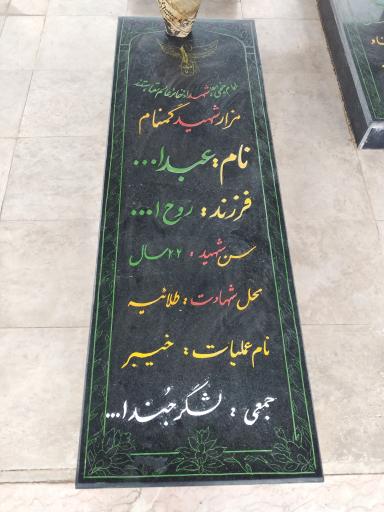 شهدا
مزار شهید گمنام
نام: عبدا...
فرزند: روح ا...
سن شهید: ۲۲ سال
محل شهادت: طلائیه
نام عملیات: خیبر
جمعی: لشگر جندا...